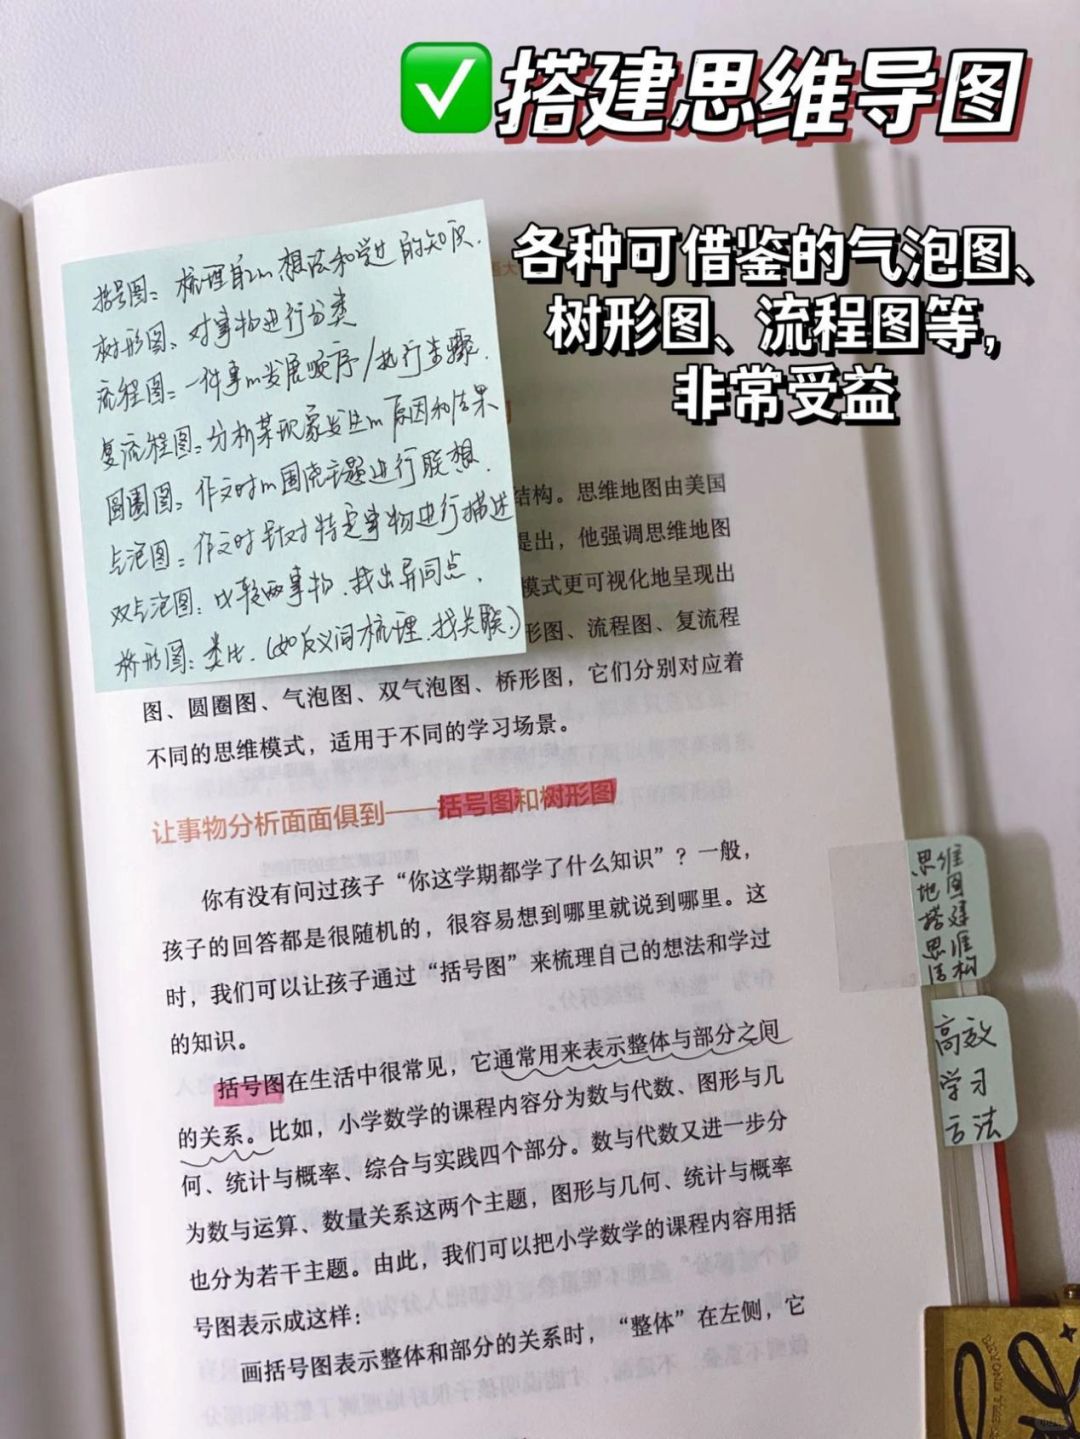 ✅搭建思维导图
各种可借鉴的气泡图、
树形图、流程图等，
非常受益
括号图：梳理自己m想法和学过的知识.
树形图：对事物进行分类
流程图：一件事m发展顺序/执行步骤.
复流程图：分析某现象发生m原因和结果
圆圈图：作文时m围绕主题进行联想.
气泡图：作文时针对特定事物进行描述
双气泡图：比较两事物.找出异同点.
桥形图：类比.(如反义词梳理.找关联.)
结构。思维地图由美国
提出，他强调思维地图
模式更可视化地呈现出
形图、流程图、复流程
图、圆圈图、气泡图、双气泡图、桥形图，它们分别对应着
不同的思维模式，适用于不同的学习场景。
让事物分析面面俱到——括号图和树形图
你有没有问过孩子“你这学期都学了什么知识”？一般，
孩子的回答都是很随机的，很容易想到哪里就说到哪里。这
时，我们可以让孩子通过“括号图”来梳理自己的想法和学过
的知识。
括号图在生活中很常见，它通常用来表示整体与部分之间
的关系。比如，小学数学的课程内容分为数与代数、图形与几
何、统计与概率、综合与实践四个部分。数与代数又进一步分
为数与运算、数量关系这两个主题，图形与几何、统计与概率
也分为若干主题。由此，我们可以把小学数学的课程内容用括
号图表示成这样：
画括号图表示整体和部分的关系时，“整体”在左侧，它
思维
地图
搭建
思维
结构
高效
学习
方法